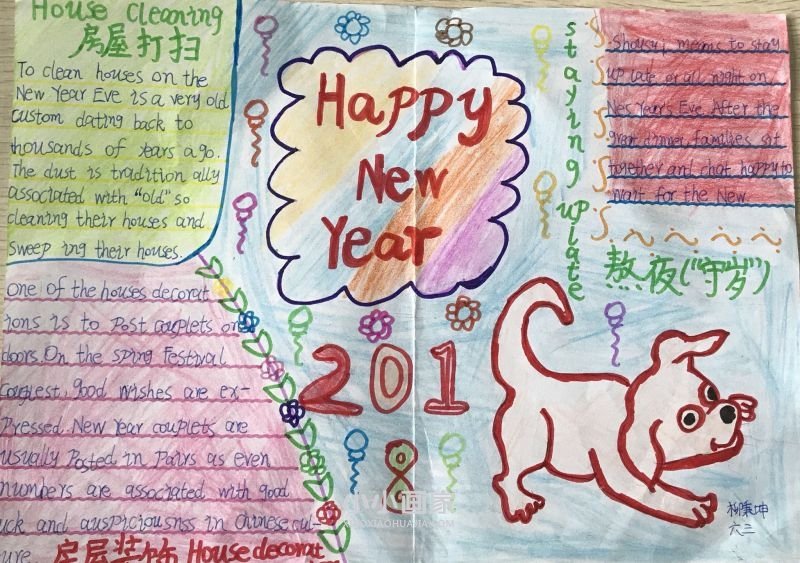 House Cleaning
房屋打扫
To clean houses on the
New Year Eve is a very old
custom dating back to
thousands of years ago.
The dust is tradition ally
associated with "old" so
cleaning their houses and
sweep ing their houses.
one of the houses decorat
ions is to post couplets or
doors. On the sping Festival
good wishes are ex-
pressed. New Year couplets are
usually Posted in Pairs as even
numbers are associated with good
uck and auspiciousnss in Chinese cul-
ure
房屋装饰 House decorat
Happy
New
Year
2018
staying uplate
Shousui means to stay
up late or all night on
New Year's Eve. After the
great dinner, families sit
together and chat happy to
wait for the New
熬夜("守岁")
小小画家
XIAOXIAOHUAJIA.COM
六三